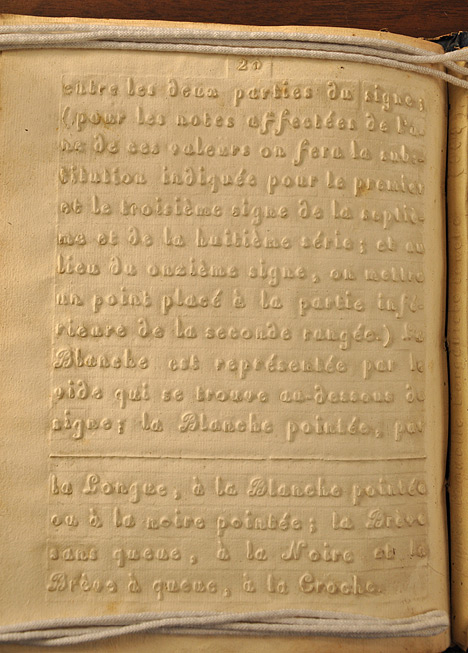 21
entre les deux parties du signe;
(pour les notes affectées de l'u-
ne de ces valeurs on fera la subs-
titution indiquée pour le premier
et le troisième signe de la septiè-
me et de la huitième série; et au
lieu du onzième signe, on mettra
un point placé à la partie infé-
rieure de la seconde rangée.) La
Blanche est représentée par le
vide qui se trouve au-dessous du
signe; la Blanche pointée, par
la Longue, à la Blanche pointée
ou à la noire pointée; la Brève
sans queue, à la Noire et la
Brève à queue, à la Croche.